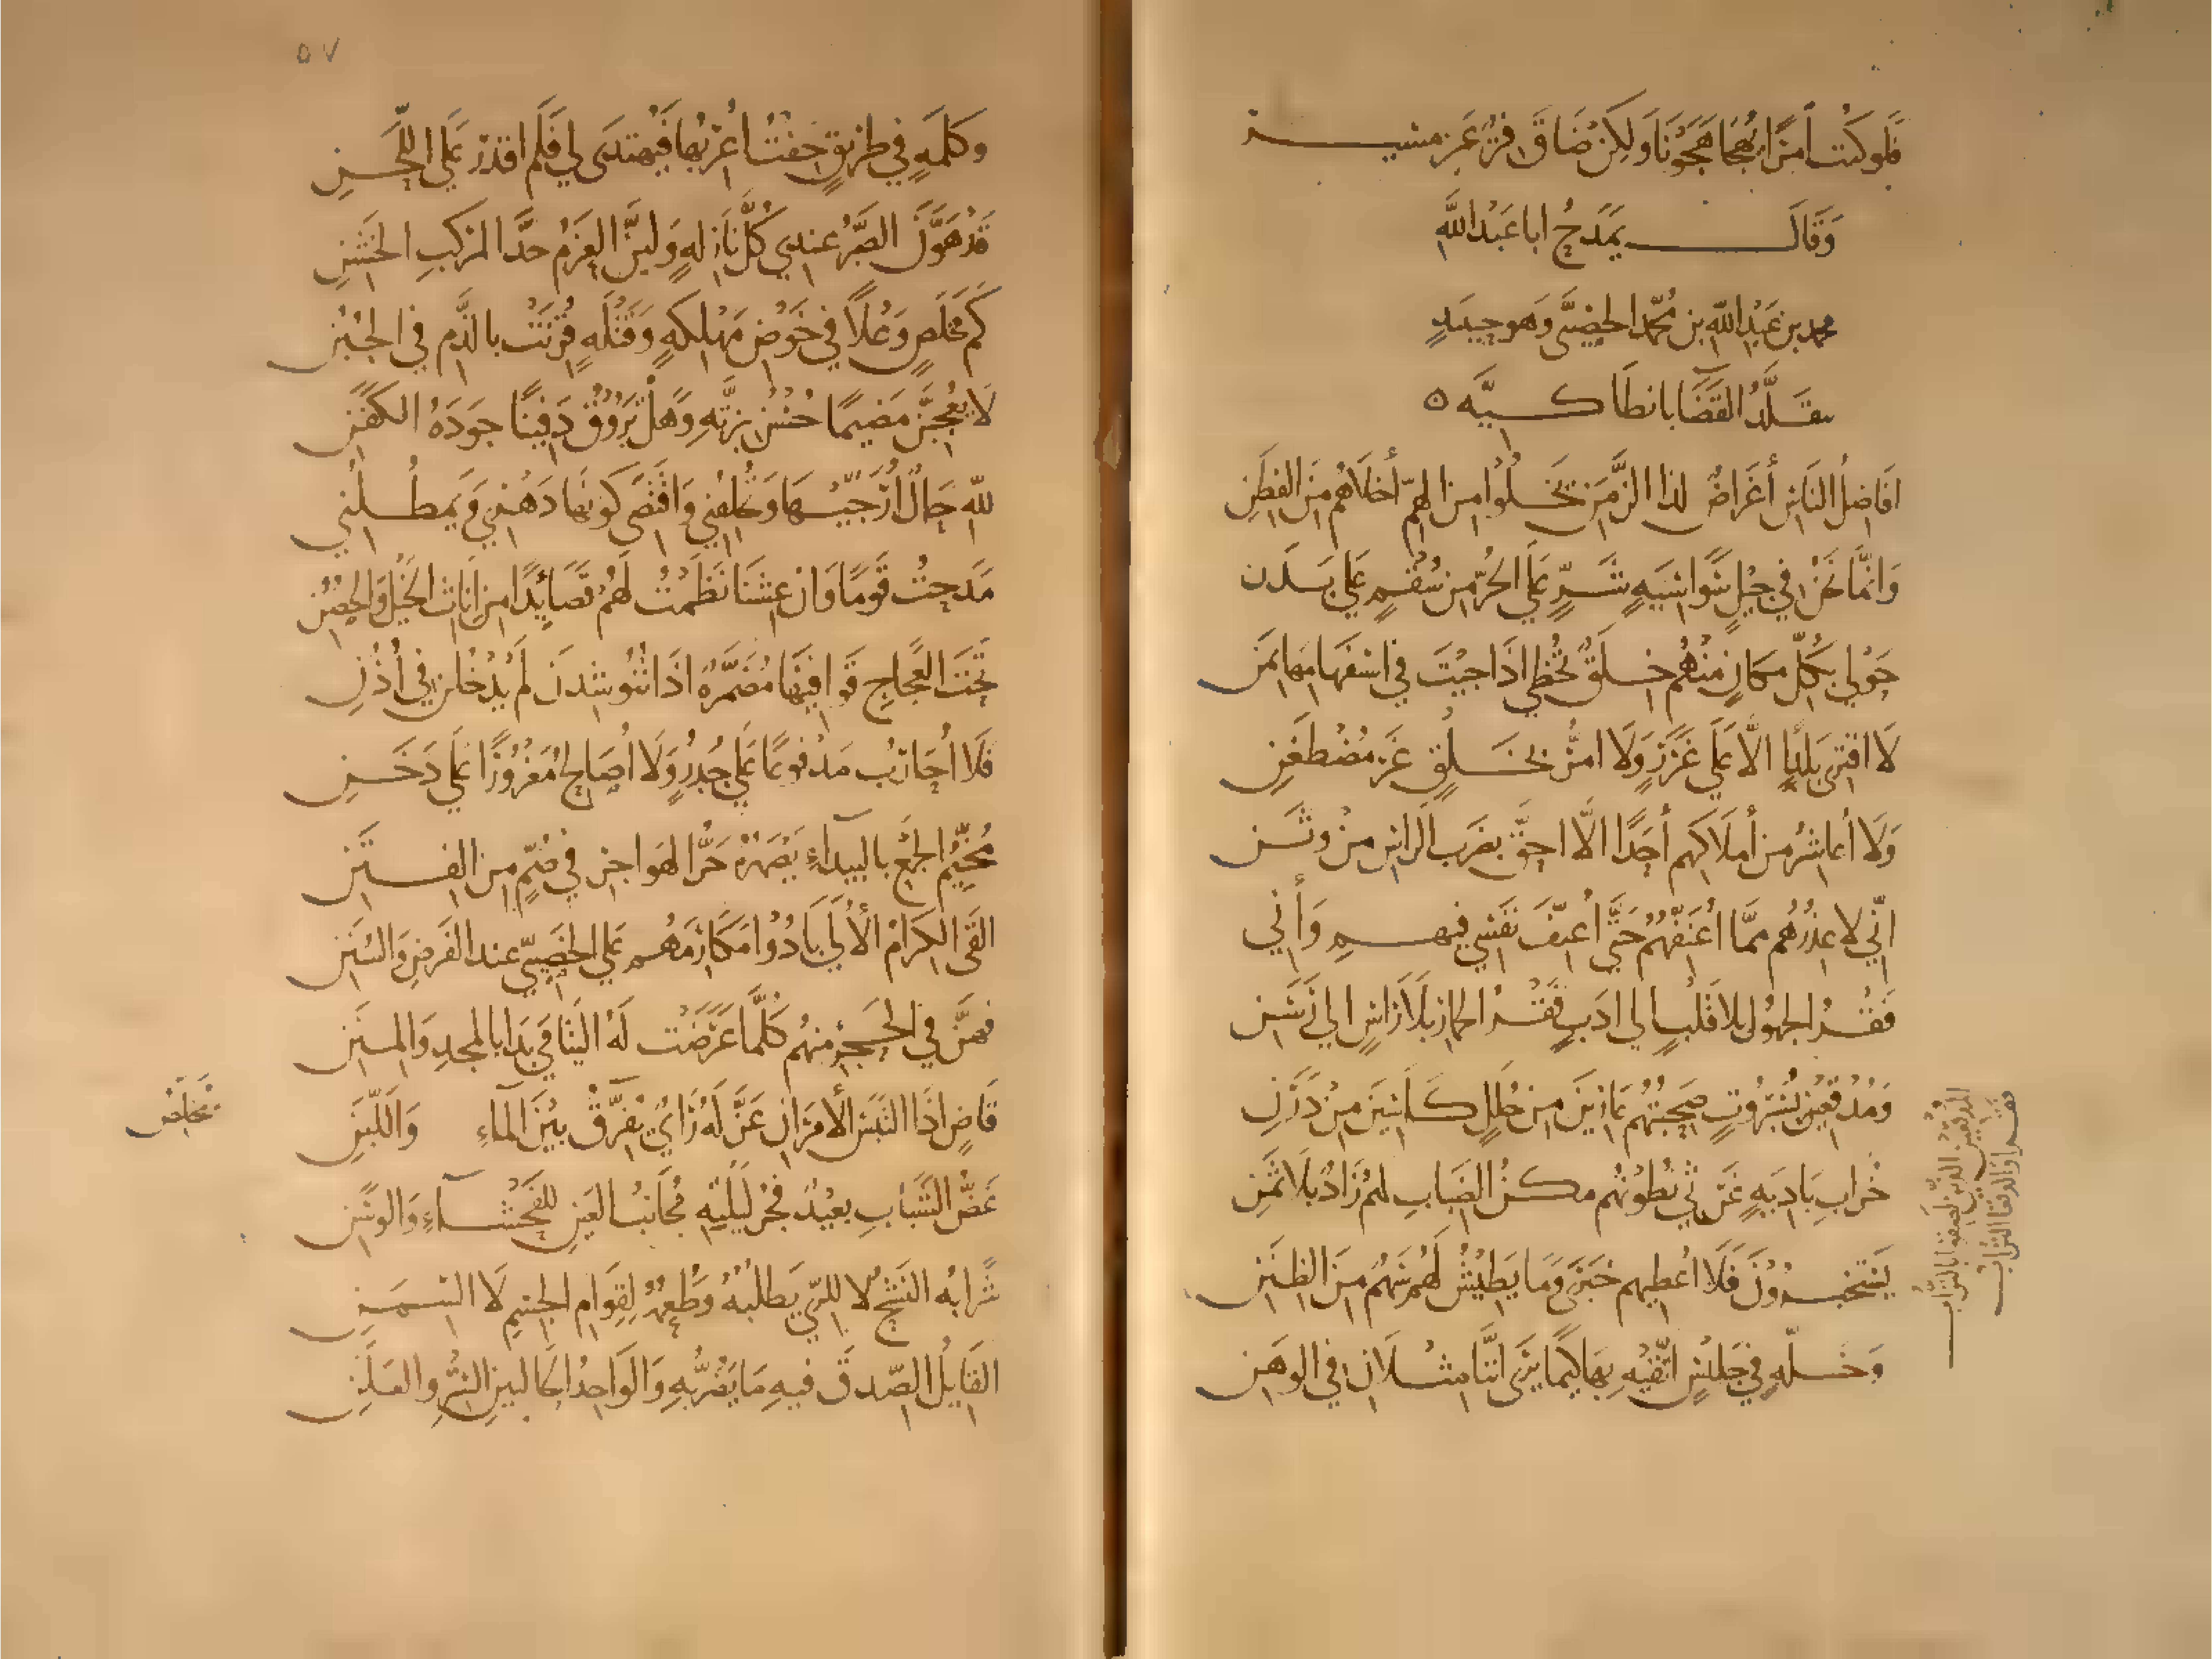 فَلَو كُنْتَ امْرَأً يُهْجَى هَجَوْنَا وَلكِنْ ضَاقَ فِتْرٌ عَن مسير
وَقَالَ يَمْدَحُ ابا عَبْدِ اللَّهِ
محمد بن عَبْدِ اللَّهِ بن مُحَمَّد الخصيبي وَهو حينيذٍ
يتقَلَّدُ القَضَا بانطَاكيَّه ٥
افَاضِلُ النَّاسِ أَغْرَاضٌ لذا الزَّمَنِ يَخْلُوا مِن الهَمِّ أخلاهُم مِنَ الفِطَنِ
وَانَّمَا نَحْنُ في جِيْلٍ سَوَاسِيَهٍ شَرٍّ عَلَى الحُرِّ مِن سُقْمٍ عَلَى بَدَن
حَوْلي بِكُلِّ مكَانٍ مِنْهُم خِلَقٌ تُخْطِي اذَا جِيْتَ في استفهَامِهَا بمَن
لَا اقتَرِي بَلَدًا الَّا عَلَى غَرَرٍ وَلَا امُرُّ بخَلْقٍ غَيرِ مُضْطَغِنِ
وَلَا أُعَاشِرُ من أَملَاكِهِم أَحَدًا الَّا احَقَّ بضَربِ الرَّاسِ مِنْ وثَن
انِّي لاعذِرُهُم ممَّا أُعَنِّفُهُمْ حَتَّى أُعَنِّفَ نَفسِي فيهِمِ وَأَنِي
فَقْرُ الجهُولِ بلا قَلْبٍ الى ادَبٍ فَقْرُ الحمارِ بلَا رَاسٍ الى رَسَنِ
وَمُدْقِعِينَ بسُبْرُوتٍ صَحِبتُهُمُ عَارِينَ مِن حُلَلٍ كَاسِينَ مِنْ دَرَنِ
خُرَّابِ بَادِيَهٍ غَرْثَى بُطُونُهُم مكْنُ الضِّبَابِ لهُم زَادٌ بِلَا ثَمَنِ
يَسْتَخْبِرُوْنَ فَلَا أُعطِيهِم خَبَرِى وَمَا يَطِيْشُ لَهُم سَهْمٌ مِنَ الظِّنَنِ
وَخَلَّهٍ في جَلِيسٍ اتَّقِيْهِ بِهَا كَيمَا يَرَى انَّنَا مِثْلَانِ في الوَهَنِ
المدقعين الذين لصقوا بالتراب
فقرا والدقعا التراب
٥٧
وَكَلْمَهٍ في طَرِيقٍ خِفْتُ أُعْرِبُهَا فَيُهْتَدَى لي فَلَم اقدِرْ عَلَى اللَّحَنِ
قَد هَوَّنَ الصَّبْرُ عِندِي كُلَّ نَازِلهٍ وَلَيَّنَ العَزمُ حدَّ المَركبِ الخَشِنِ
كَم مَخْلَصٍ وَعُلاً في خَوْضِ مَهْلِكَهٍ وَقَتْلَهٍ قُرِنَتْ بالذَّمِ في الجُبُن
لَا يُعْجِبَنَّ مَضيمًا حُسْنُ بِزَّتِهِ وَهَلْ تَرُوْقُ دَفِيْنًا جَودَةُ الكَفَنِ
للهِ حَالٌ أُرَجِّيْهَا وَتُخْلِفُنِي وَاقْتَضِي كَونهَا دَهْري وَيَمطُلُنِي
مَدَحْتُ قَومًا وَان عِشنَا نَظَمْتُ لَهُمْ قصَايِدًا مِن اِنَاثِ الخَيْلِ وَالحُصُنِ
تَحْتَ العَجَاجِ قَوَافِيْهَا مُضَمَّرَةٌ اذَا تُنُوشِدنَ لَم يَدْخُلنَ في أُذُنِ
فَلَا أُحَارِبُ مَدْفوعًا عَلَى جُدُرٍ وَلَا أُصَالِحُ مَغْرُوْرًا عَلَى دَخَنِ
مُخَيِّمُ الجَمْعِ بالبيدآءِ يَصْهَرُهُ حَرُّ الهَواجِرِ في صُمٍّ مِن الفِتَنِ
الْقَى الكِرَامُ الأُلَى بَادُوا مَكَارِمَهُم عَلَى الخَصِيبِيِّ عند الفَرضِ وَالسُّنَنِ
فهُنَّ في الحَجْرِ مِنهُم كُلَّمَا عَرَضَتْ لَهُ اليَتَامَى بَدَا بالمجدِ وَالمِنَنِ
قَاضٍ اذَا التَبَسَ الأَمرَانِ عَنَّ لَهُ رَأيٌ يُفَرِّقُ بَيْنَ المآءِ وَاللَّبَنِ
غَضُّ الشَّبَابِ بعيْدٌ فجْرُ لَيلَتِهِ مُجَانِبُ العَينِ للفَحْشَآءِ وَالوسَنِ
شَرَابُه النَّشْحُ لا للرِّيِ يَطلُبُهُ وَطَعْمُهُ لِقِوَامِ الجِسمِ لَا السِّمَنِ
القَايِلُ الصِّدقَ فيهِ مَا يَضُرُّ بهِ وَالوَاحِدُ الحَالَينِ السِّرِّ والعَلَنِ